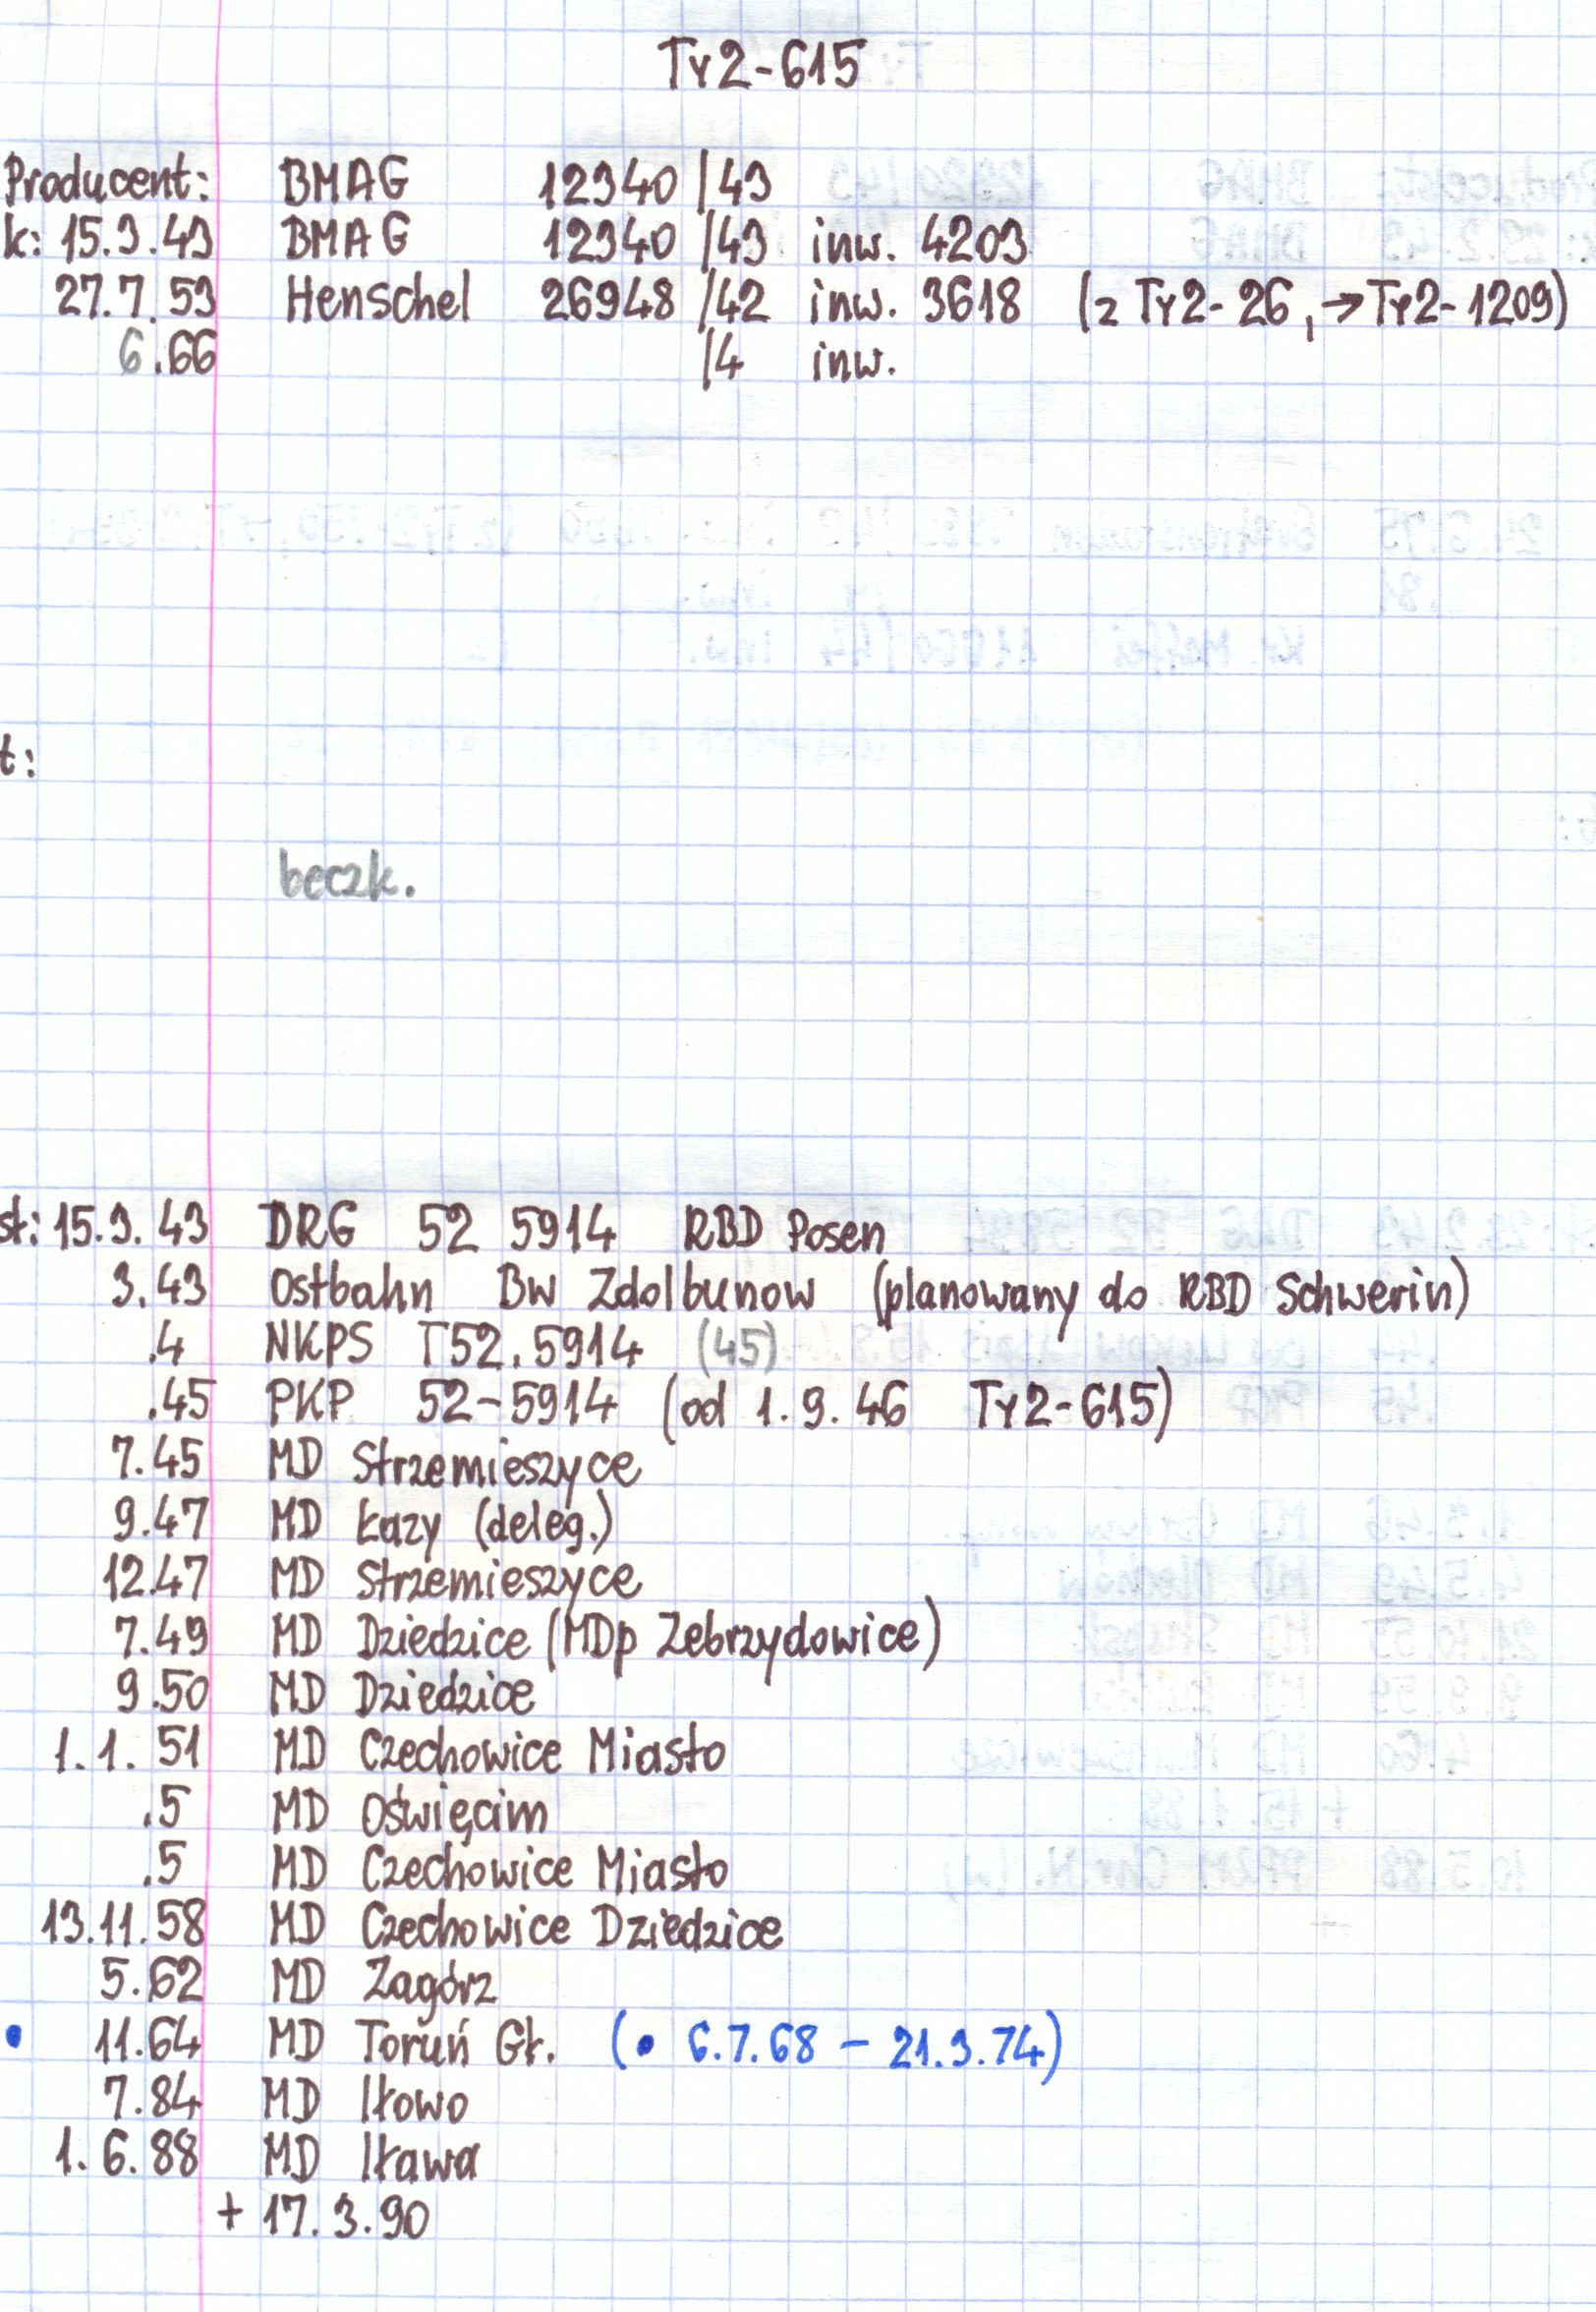 Ty2-615
Producent: BMAG 12340/43
k: 15.3.43 BMAG 12340/43 inw. 4203
27.7.53 Henschel 26948/42 inw. 3618 (z Ty2-26, →Ty2-1209)
6.66 /4 inw.
t:
beczk.
st: 15.3.43 DRG 52 5914 RBD Posen
3.43 Ostbahn Bw Zdolbunow (planowany do RBD Schwerin)
.4 NKPS T52.5914 (45)
.45 PKP 52-5914 (od 1.9.46 Ty2-615)
7.45 MD Strzemieszyce
9.47 MD Łazy (deleg.)
12.47 MD Strzemieszyce
7.49 MD Dziedzice (MDp Zebrzydowice)
9.50 MD Dziedzice
1.1.51 MD Czechowice Miasto
.5 MD Oświęcim
.5 MD Czechowice Miasto
13.11.58 MD Czechowice Dziedzice
5.62 MD Zagórz
• 11.64 MD Toruń Gł. (• 6.7.68 – 21.3.74)
7.84 MD Iłowo
1.6.88 MD Iława
+ 17.3.90